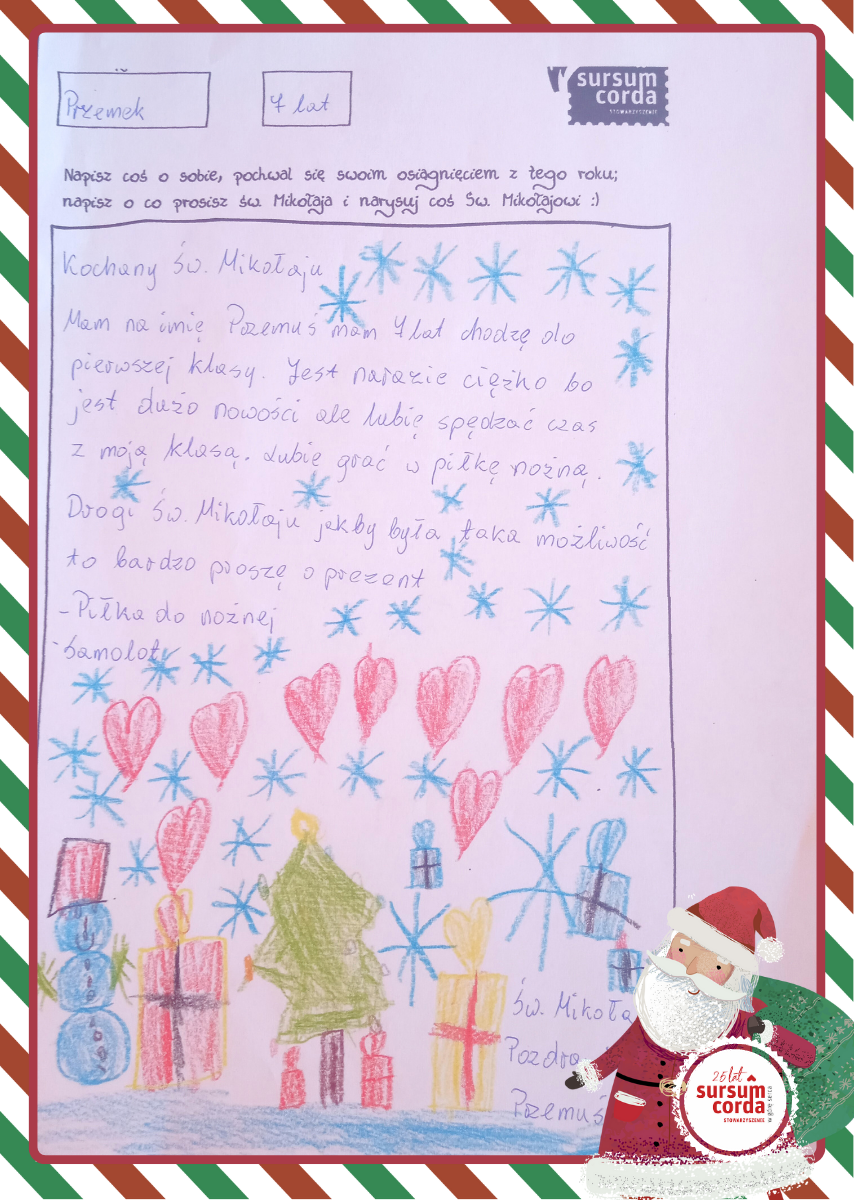 Przemek
7 lat
sursum
corda
STOWARZYSZENIE
Napisz coś o sobie, pochwal się swoim osiągnięciem z tego roku;
napisz o co prosisz św. Mikołaja i narysuj coś Św. Mikołajowi :)
Kochany Św. Mikołaju
Mam na imię Pozemuś mam 7 lat chodzę do
pierwszej klasy. Jest narazie ciężko bo
jest dużo nowości ale lubię spędzać czas
z moją klasą. Lubię grać w piłkę nożną.
Drogi Św. Mikołaju jakby była taka możliwość
to bardzo proszę o prezent
- Piłka do nożnej
- Samolot
Św. Mikoła
Pozdro
Pozemuś
25 lat
sursum
corda
STOWARZYSZENIE
w górę serca